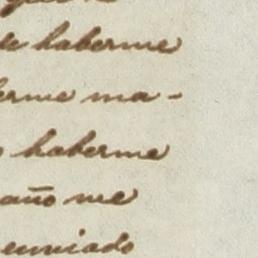 de haberme
erme ma-
haberme
año me
enviado